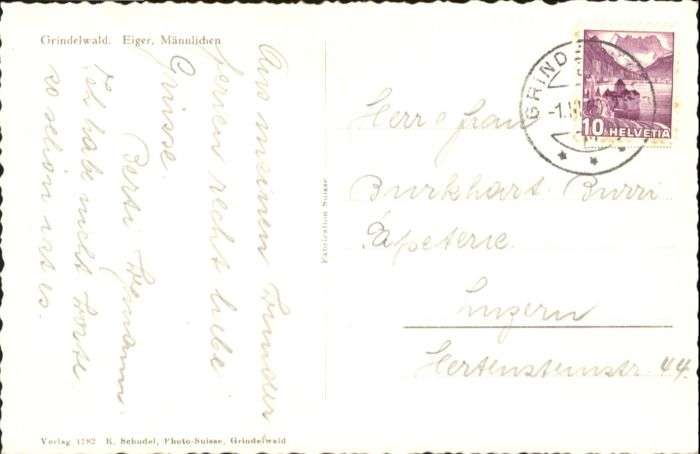 Grindelwald. Eiger, Männlichen
Aus meinen
ferien recht liebe
Grüsse.
Berti
Ich habe nicht Worte
so schön ist es.
Fabrication Suisse
GRIND
-1.
10 HELVETIA
Herr & Frau
Burkhart-Burri
Papeterie
Luzern
Hertensteinstr 44.
Verlag 1782 R. Schudel, Photo-Suisse, Grindelwald